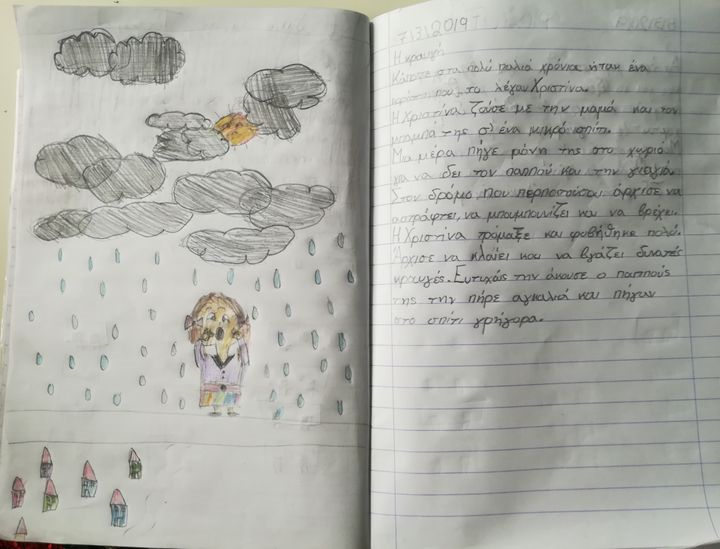 7/3/2019
Η κραυγή
Κάποτε στα πολύ παλιά χρόνια ήταν ένα
κορίτσι που το λέγαν Χριστίνα.
Η Χριστίνα ζούσε με την μαμά και τον
μπαμπά της σ' ένα μικρό σπίτι.
Μια μέρα πήγε μόνη της στο χωριό
για να δει τον παππού και την γιαγιά
Στον δρόμο που περπατούσαι άρχισε να
αστράφτει, να μπουμπουνίζει και να βρέχει.
Η Χριστίνα τρόμαξε και φοβήθηκε πολύ.
Άρχισε να κλαίει και να βγάζει δυνατές
κραυγές. Ευτυχώς την άκουσε ο παππούς
της την πήρε αγκαλιά και πήγαν
στο σπίτι γρήγορα.